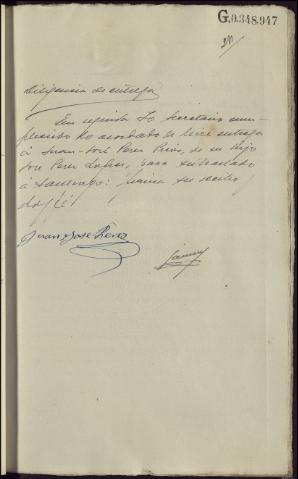 G.0.348.947
Diligencia de entrega
En seguida yo Secretario cum-
pliendo lo acordado le hice entrega
a Juan José Perez Rivas, de su hijo
José Perez para su traslado
a Santiago: firma su recibo
doy fé
Juan Jose Perez